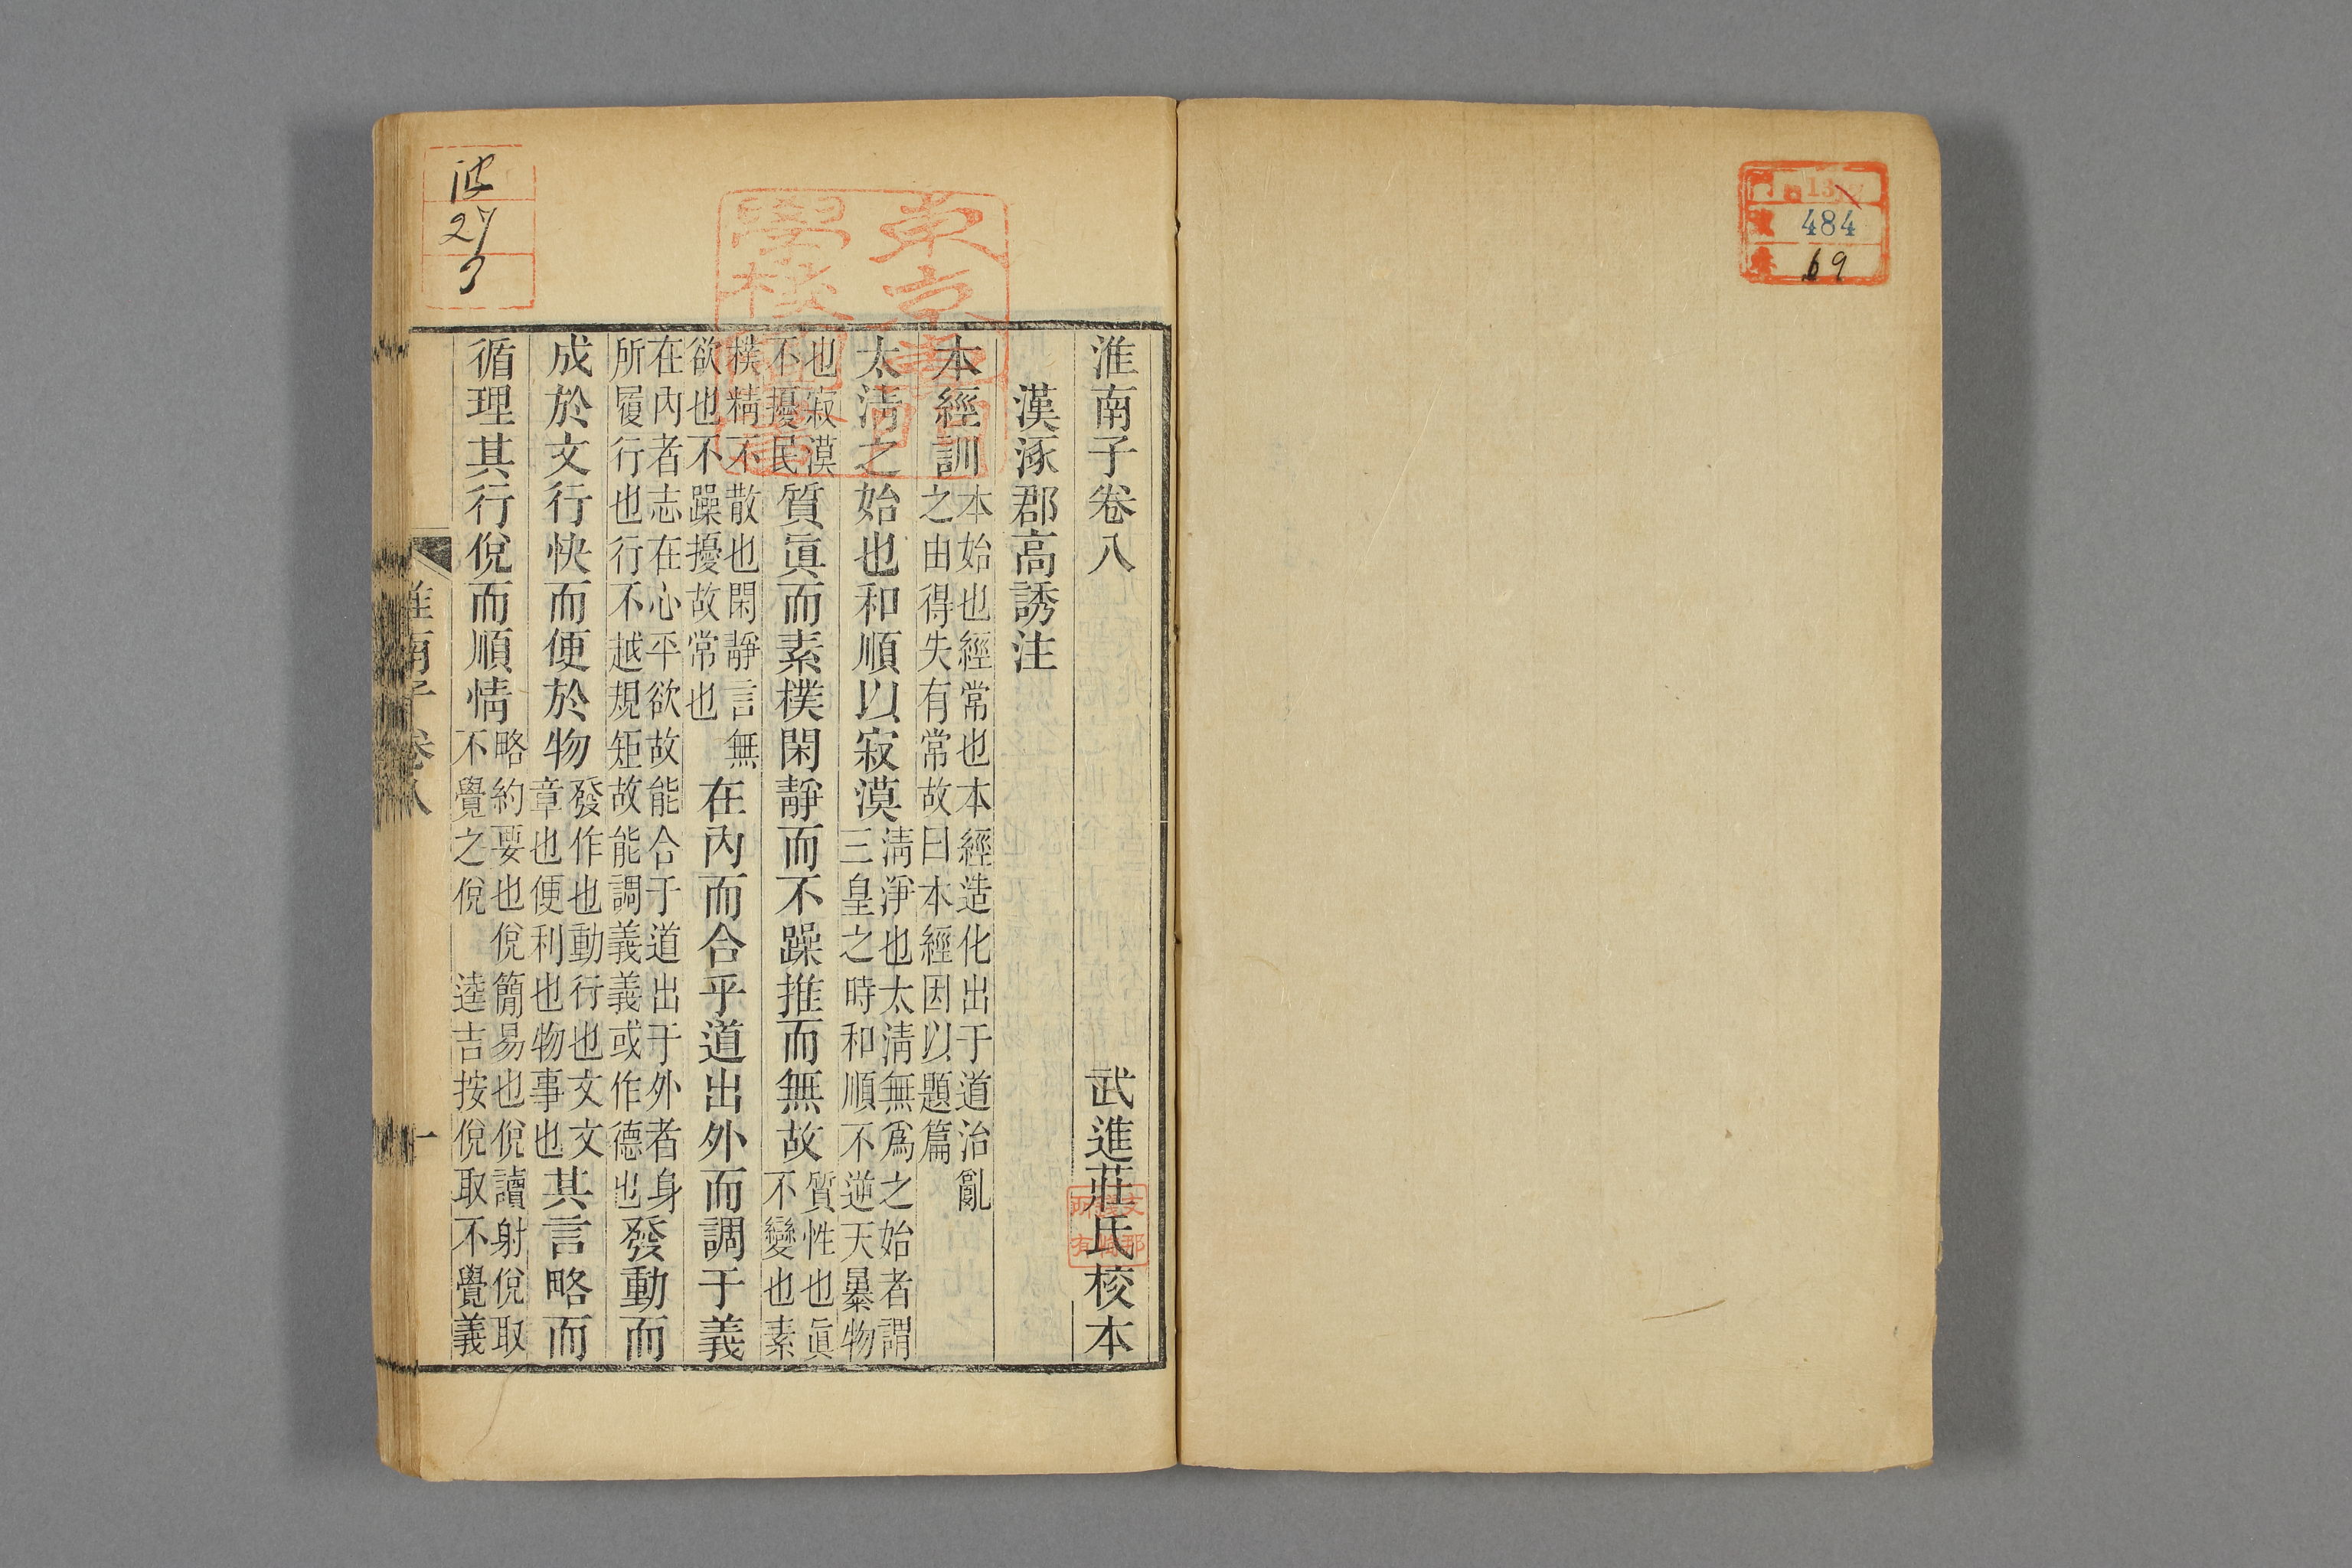 484
69
淮南子卷八　武進莊氏校本
漢涿郡高誘注
本經訓本始也經常也本經造化出于道治亂之由得失有常故曰本經因以題篇
太清之始也和順以寂漠清淨也太清無爲之始者謂三皇之時和順不逆天暴物
也寂漠不擾民質眞而素樸閑靜而不躁推而無故質性也眞不變也素
樸精不散也閑靜言無欲也不躁擾故常也在內而合乎道出外而調于義
在內者志在心平欲故能合于道出于外者身所履行也行不越規矩故能調義義或作德也發動而
成於文行快而便於物發作也動行也文文章也便利也物事也其言略而
循理其行侻而順情略約要也侻簡易也侻讀射侻取不覺之侻　逵吉按侻取不覺義
淮南子卷八　一
27